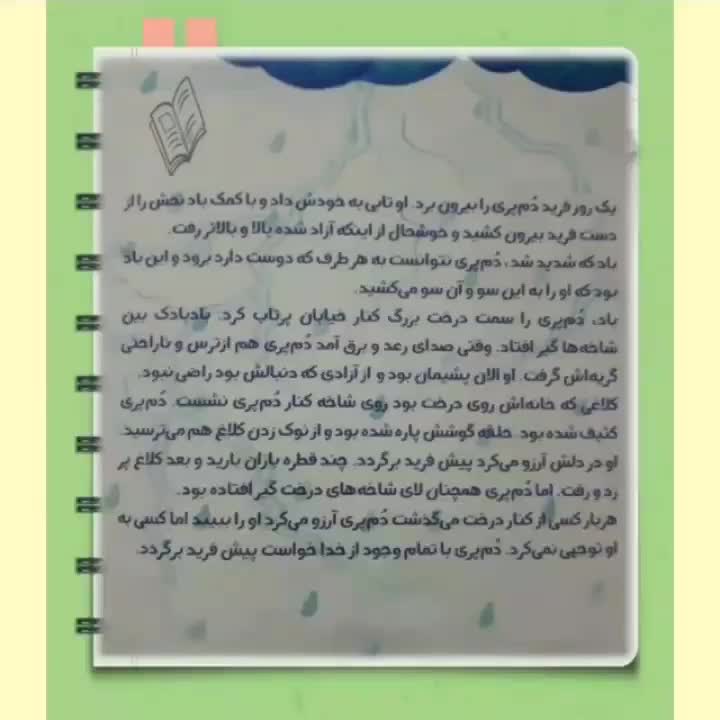 یک روز فرید دُم‌پری را بیرون برد. او تابی به خودش داد و با کمک باد نخش را از
دست فرید بیرون کشید و خوشحال از اینکه آزاد شده بالا و بالاتر رفت.
باد که شدید شد، دُم‌پری نتوانست به هر طرف که دوست دارد برود و این باد
بود که او را به این سو و آن سو می‌کشید.
باد، دُم‌پری را سمت درخت بزرگ کنار خیابان پرتاب کرد. بادبادک بین
شاخه‌ها گیر افتاد. وقتی صدای رعد و برق آمد دُم‌پری هم ازترس و ناراحتی
گریه‌اش گرفت. او الان پشیمان بود و از آزادی که دنبالش بود راضی نبود.
کلاغی که خانه‌اش روی درخت بود روی شاخه کنار دُم‌پری نشست. دُم‌پری
کثیف شده بود. حلقه گوشش پاره شده بود و از نوک زدن کلاغ هم می‌ترسید.
او در دلش آرزو می‌کرد پیش فرید برگردد. چند قطره باران بارید و بعد کلاغ پر
زد و رفت. اما دُم‌پری همچنان لای شاخه‌های درخت گیر افتاده بود.
هربار کسی از کنار درخت می‌گذشت دُم‌پری آرزو می‌کرد او را ببیند اما کسی به
او توجهی نمی‌کرد. دُم‌پری با تمام وجود از خدا خواست پیش فرید برگردد.